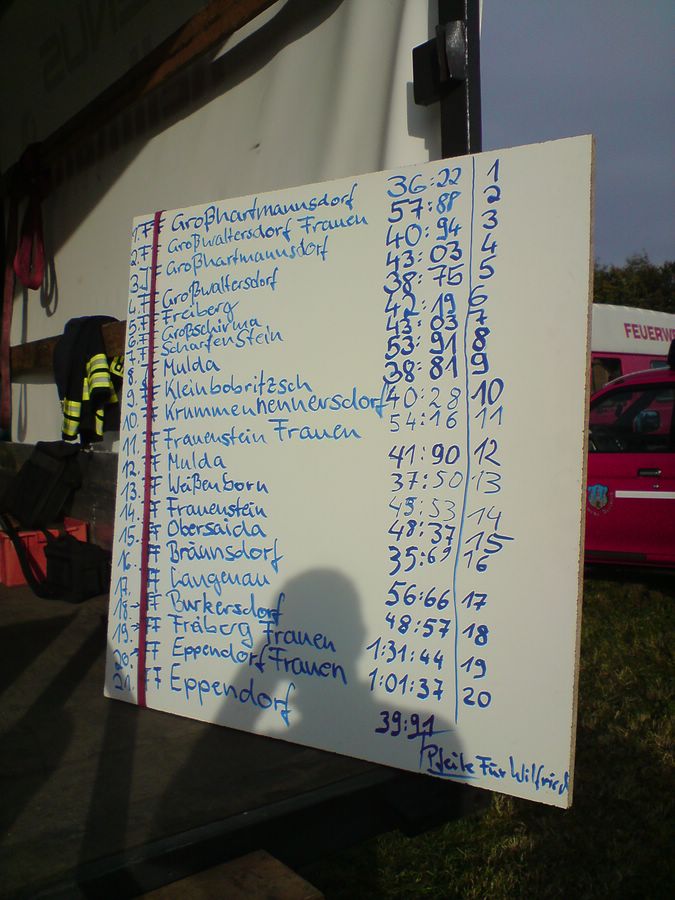 1. FF Großhartmannsdorf 36:22 1
2. FF Großwaltersdorf Frauen 57:88 2
3. JF Großhartmannsdorf 40:94 3
4. FF Großwaltersdorf 43:03 4
5. FF Freiberg 38:75 5
6. FF Großschirma 42:19 6
7. FF Scharfenstein 43:03 7
8. FF Mulda 53:91 8
9. FF Kleinbobritzsch 38:81 9
10. FF Krummenhennersdorf 40:28 10
11. FF Frauenstein Frauen 54:16 11
12. FF Mulda 41:90 12
13. FF Weißenborn 37:50 13
14. FF Frauenstein 45:53 14
15. FF Obersaida 48:37 15
16. FF Bräunsdorf 35:69 16
17. FF Langenau 56:66 17
18. FF Burkersdorf 48:57 18
19. FF Freiberg Frauen 1:31:44 19
20. FF Eppendorf Frauen 1:01:37 20
21. FF Eppendorf 39:91
Pfeile Für Wilfried
FEUERWE